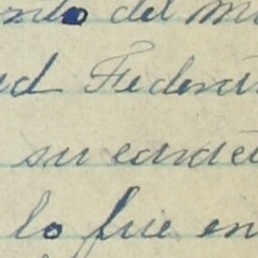 nto del m
d Federa
su caráct
lo fue en